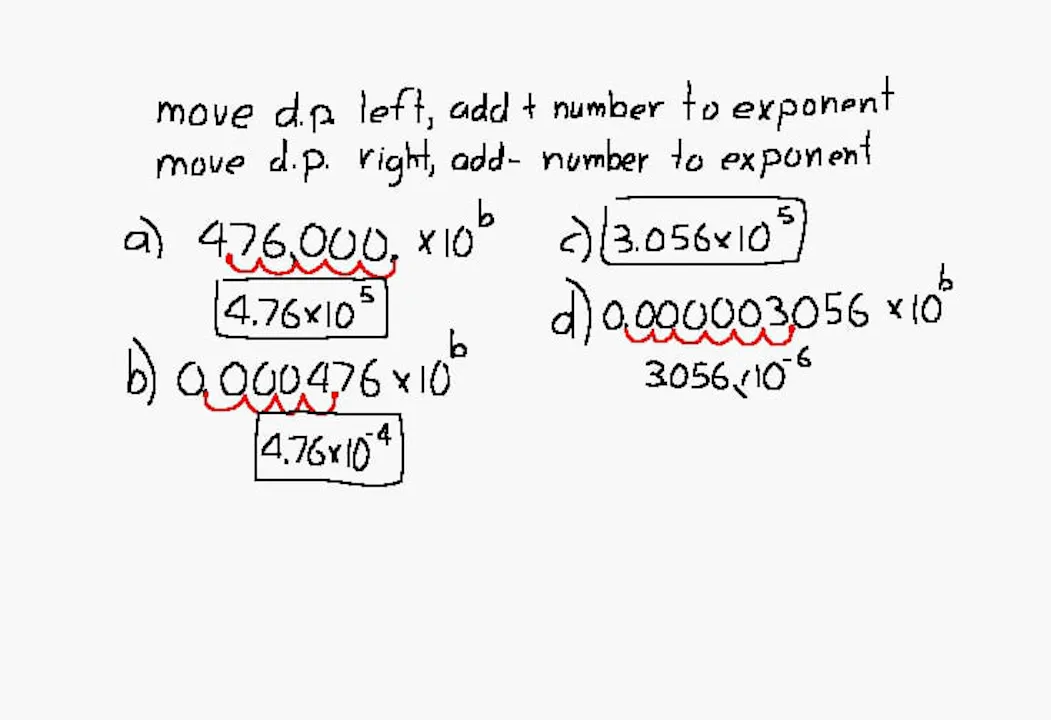 move d.p. left, add + number to exponent
move d.p. right, add - number to exponent
a) 476,000. x10^b
4.76x10^5
b) 0.000476 x10^b
4.76x10^-4
c) 3.056x10^5
d) 0.000003056 x10^b
3.056x10^-6